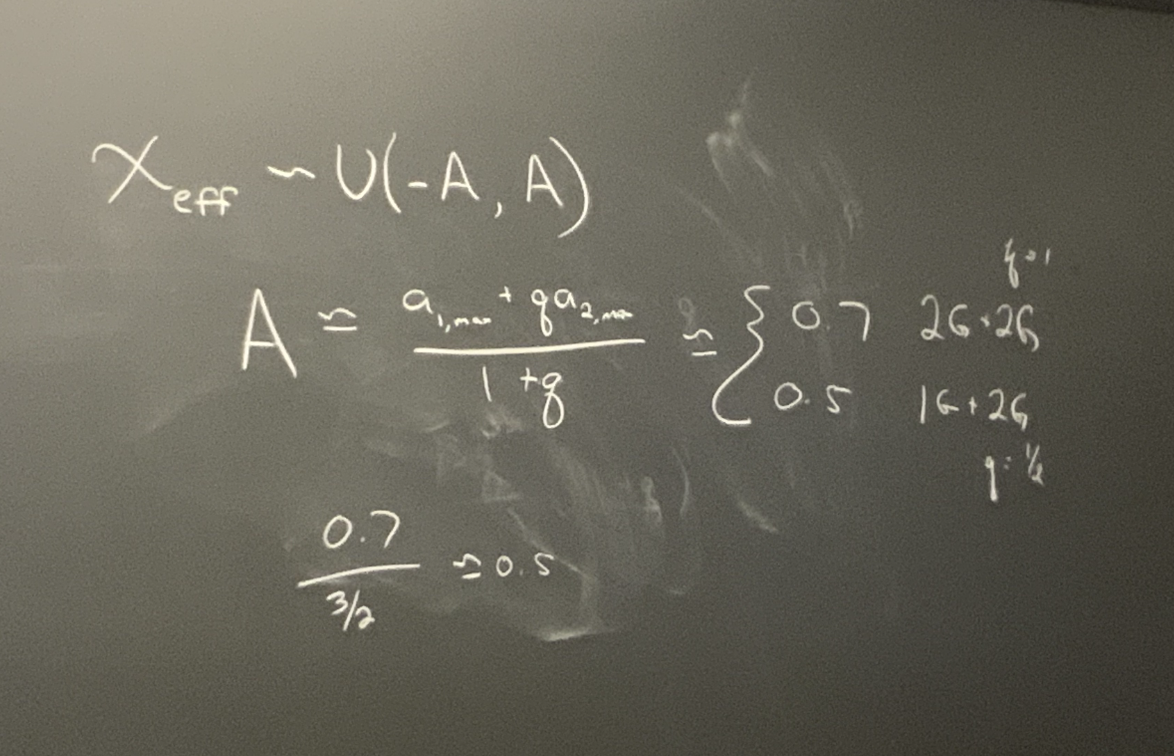 χ_eff ~ U(-A, A)
q=1
A ≃ (a_1,max + q a_2,max) / (1 + q) ≃ { 0.7 2G+2G
0.5 1G+2G
q=1/2
0.7 / (3/2) ≃ 0.5